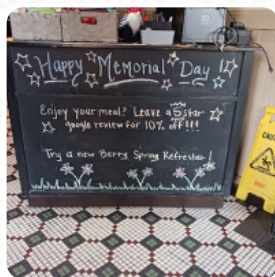 Happy Memorial Day!
Enjoy your meal? Leave a 5 star
google review for 10% off!!!
Try a new Berry Spring Refresher!
CAUT